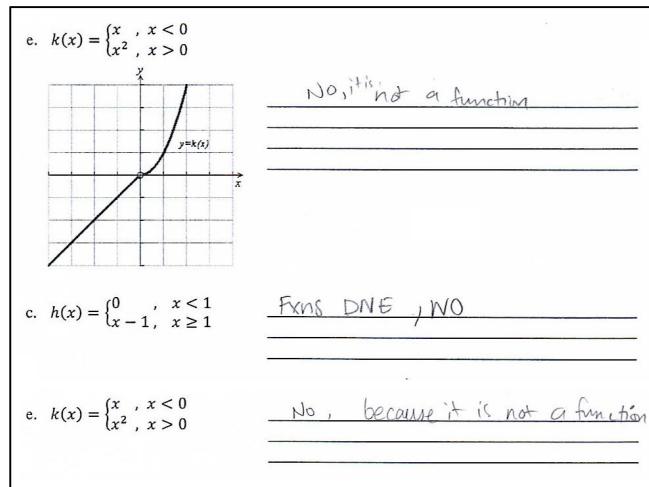 e. k(x) = {x , x < 0
x² , x > 0
y
No, it is not a function
y=k(x)
x
c. h(x) = {0 , x < 1
x − 1, x ≥ 1
Fxns DNE , NO
e. k(x) = {x , x < 0
x² , x > 0
No, because it is not a function